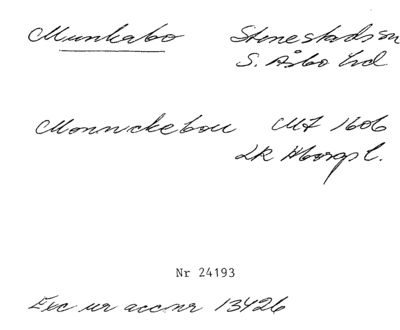 Munkabo Stenestads sn
S. Åsbo hd
Monnickebou Mf 1606
LR Hborgs l.
Nr 24193
Exc ur accnr 13426